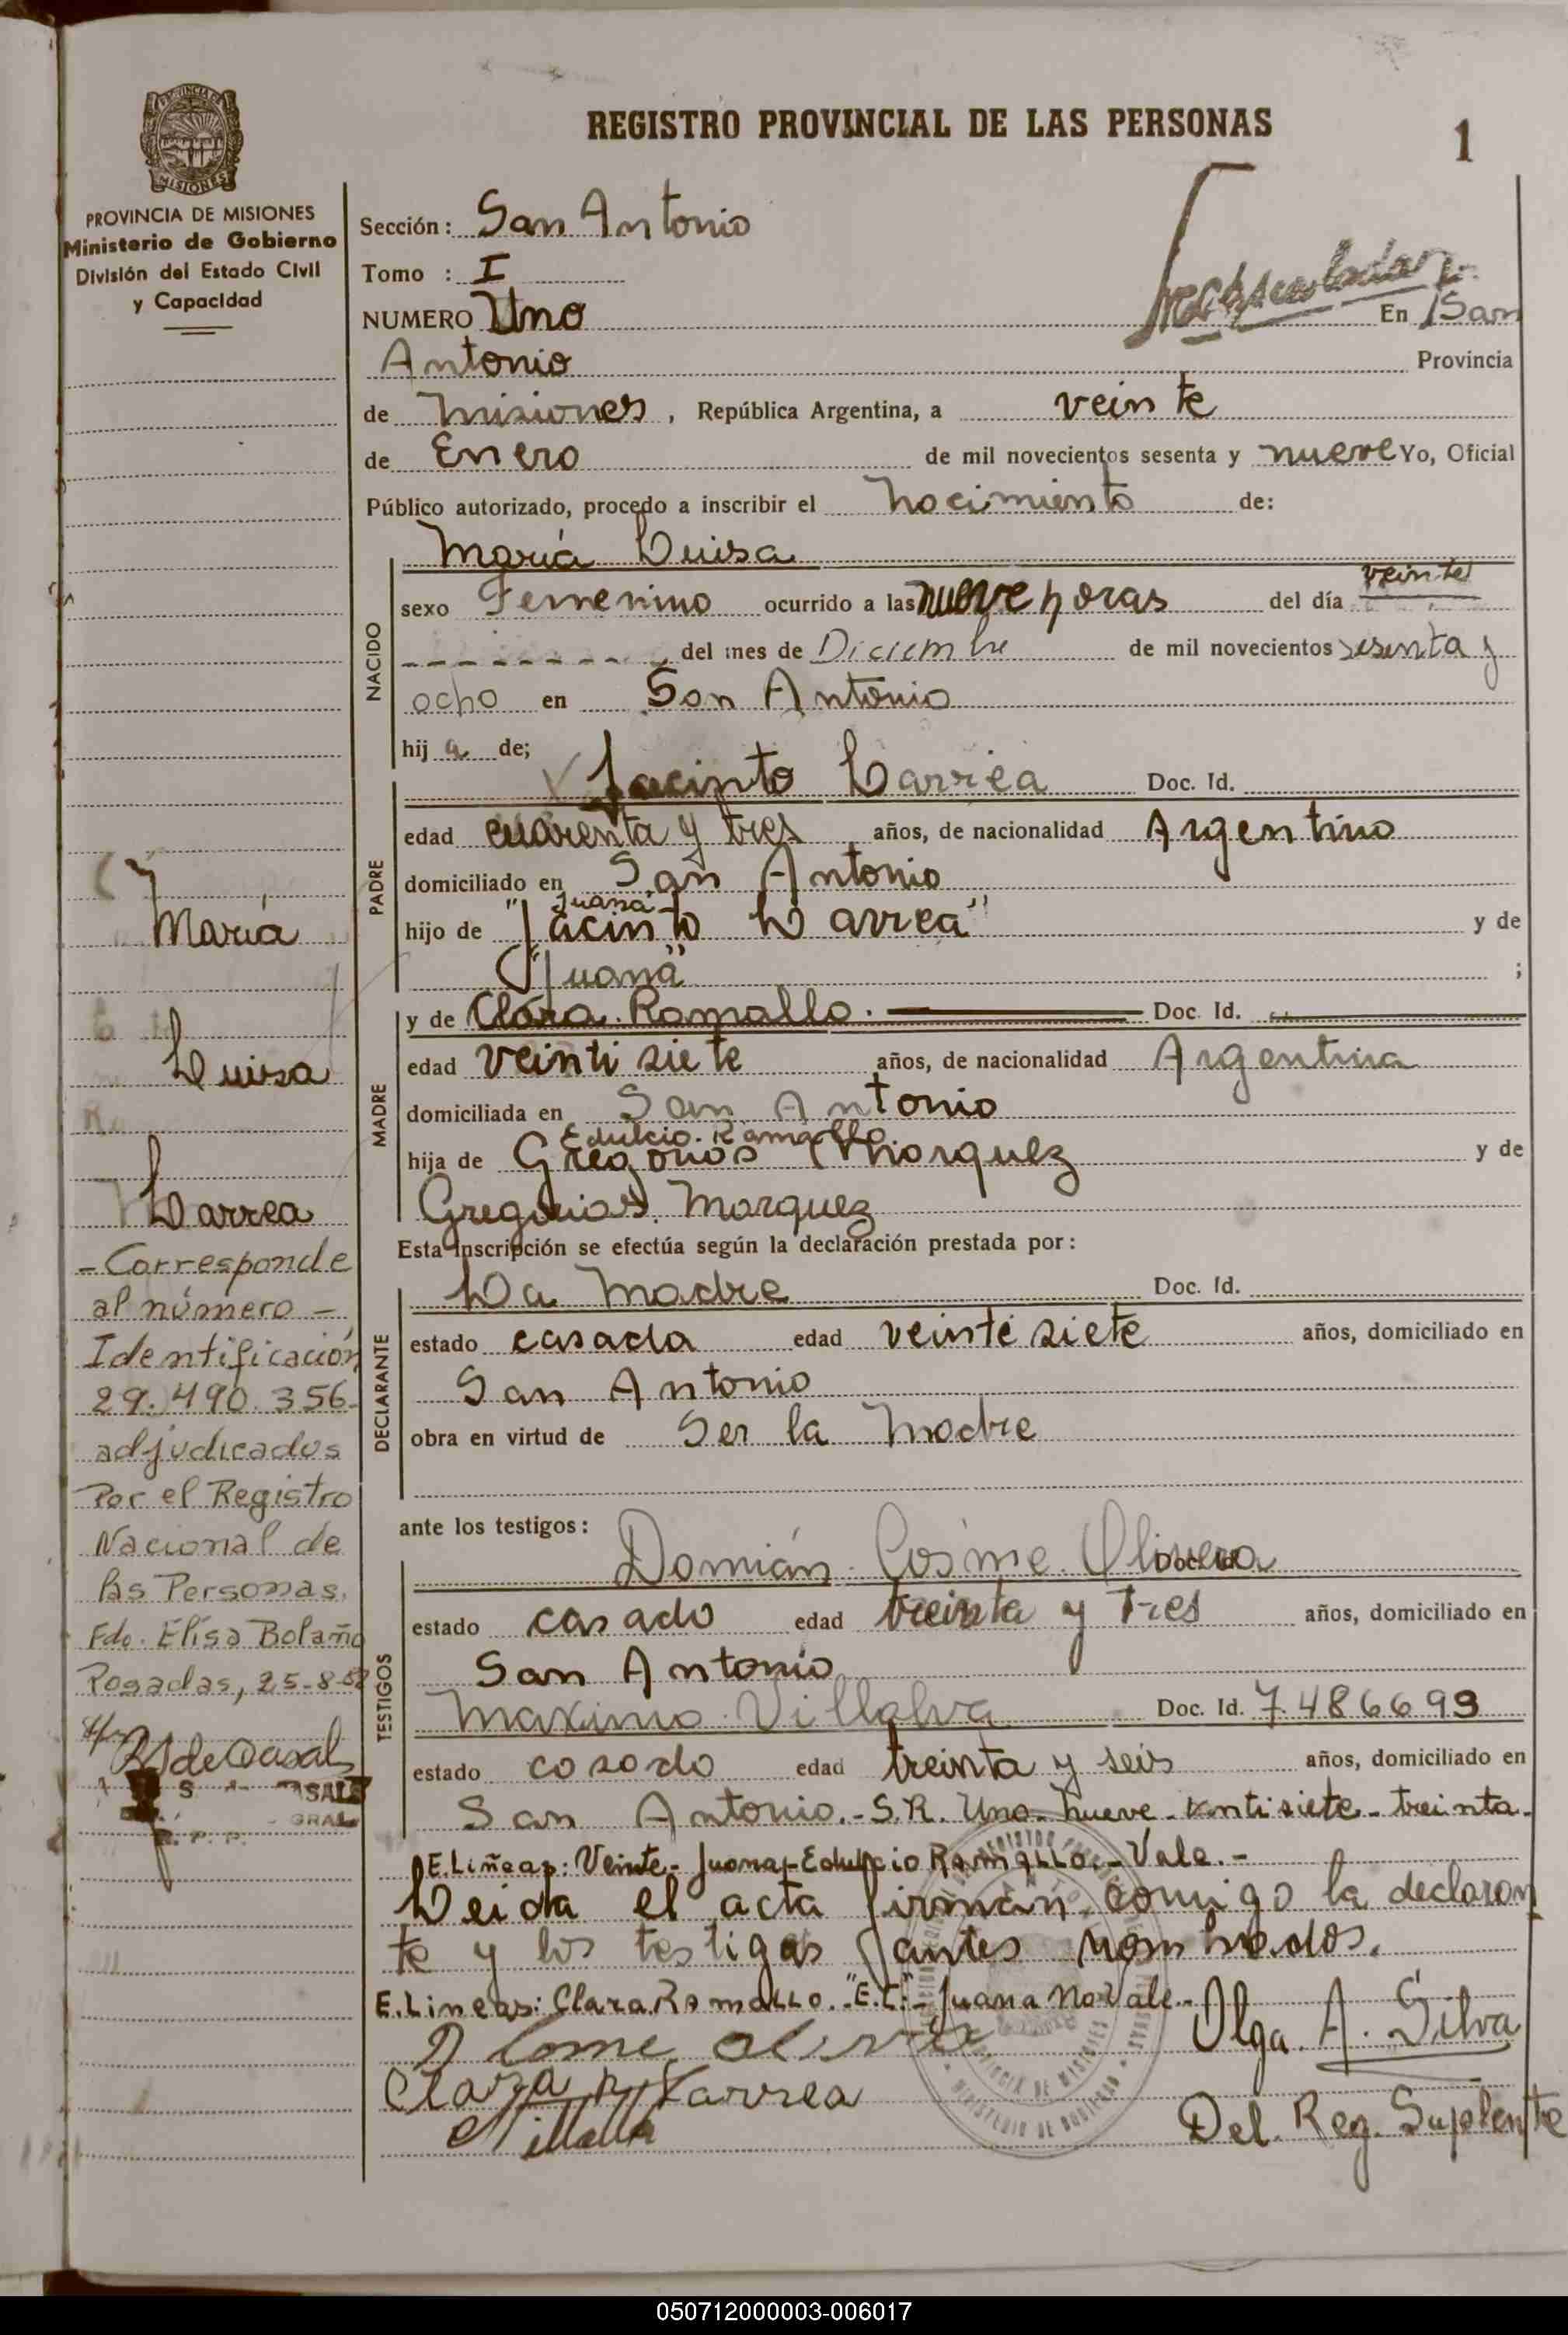 REGISTRO PROVINCIAL DE LAS PERSONAS
1
PROVINCIA DE MISIONES
Ministerio de Gobierno
División del Estado Civil
y Capacidad
Sección: San Antonio
Tomo : I
NUMERO Uno En San
Antonio Provincia
de Misiones, República Argentina, a veinte
de Enero de mil novecientos sesenta y nueve Yo, Oficial
Público autorizado, procedo a inscribir el nacimiento de:
María Luisa
NACIDO
sexo Femenino ocurrido a las nueve horas del día veinte
del mes de Diciembre de mil novecientos sesenta y
ocho en San Antonio
hij a de;
PADRE
Jacinto Larrea Doc. Id.
edad cuarenta y tres años, de nacionalidad Argentino
domiciliado en San Antonio
Juana
hijo de "Jacinto Larrea" y de
"Juana" ;
MADRE
y de Clara Ramallo. Doc. Id.
edad veinti siete años, de nacionalidad Argentina
domiciliada en San Antonio
Edulcio Ramallo
hija de Gregorios Marquez y de
Gregorias Marquez
Esta inscripción se efectúa según la declaración prestada por:
DECLARANTE
La Madre Doc. Id.
estado casada edad veinte siete años, domiciliado en
San Antonio
obra en virtud de Ser la Madre
ante los testigos:
TESTIGOS
Damián Cosme Olivera Doc. Id.
estado casado edad treinta y tres años, domiciliado en
San Antonio
Maximo Villalva Doc. Id. 7.486699
estado casado edad treinta y seis años, domiciliado en
San Antonio.- S.R. Uno- nueve- ventisiete- treinta-
E.Liñeas: Veinte- Juana- Edulcio Ramallo.- Vale.-
Leida el acta firman comigo la declaran
te y los testigos antes nombrados.
E.Lineas: Clara Ramallo. "E.L:"- Juana No Vale.-
Olga A. Silva
Clara R Larrea
Del. Reg. Suplente
María
Luisa
Larrea
- Corresponde
al número -
Identificación
29.490.356-
adjudicados
Por el Registro
Nacional de
las Personas.
Fdo. Elisa Bolaño
Posadas, 25-8-82
050712000003-006017